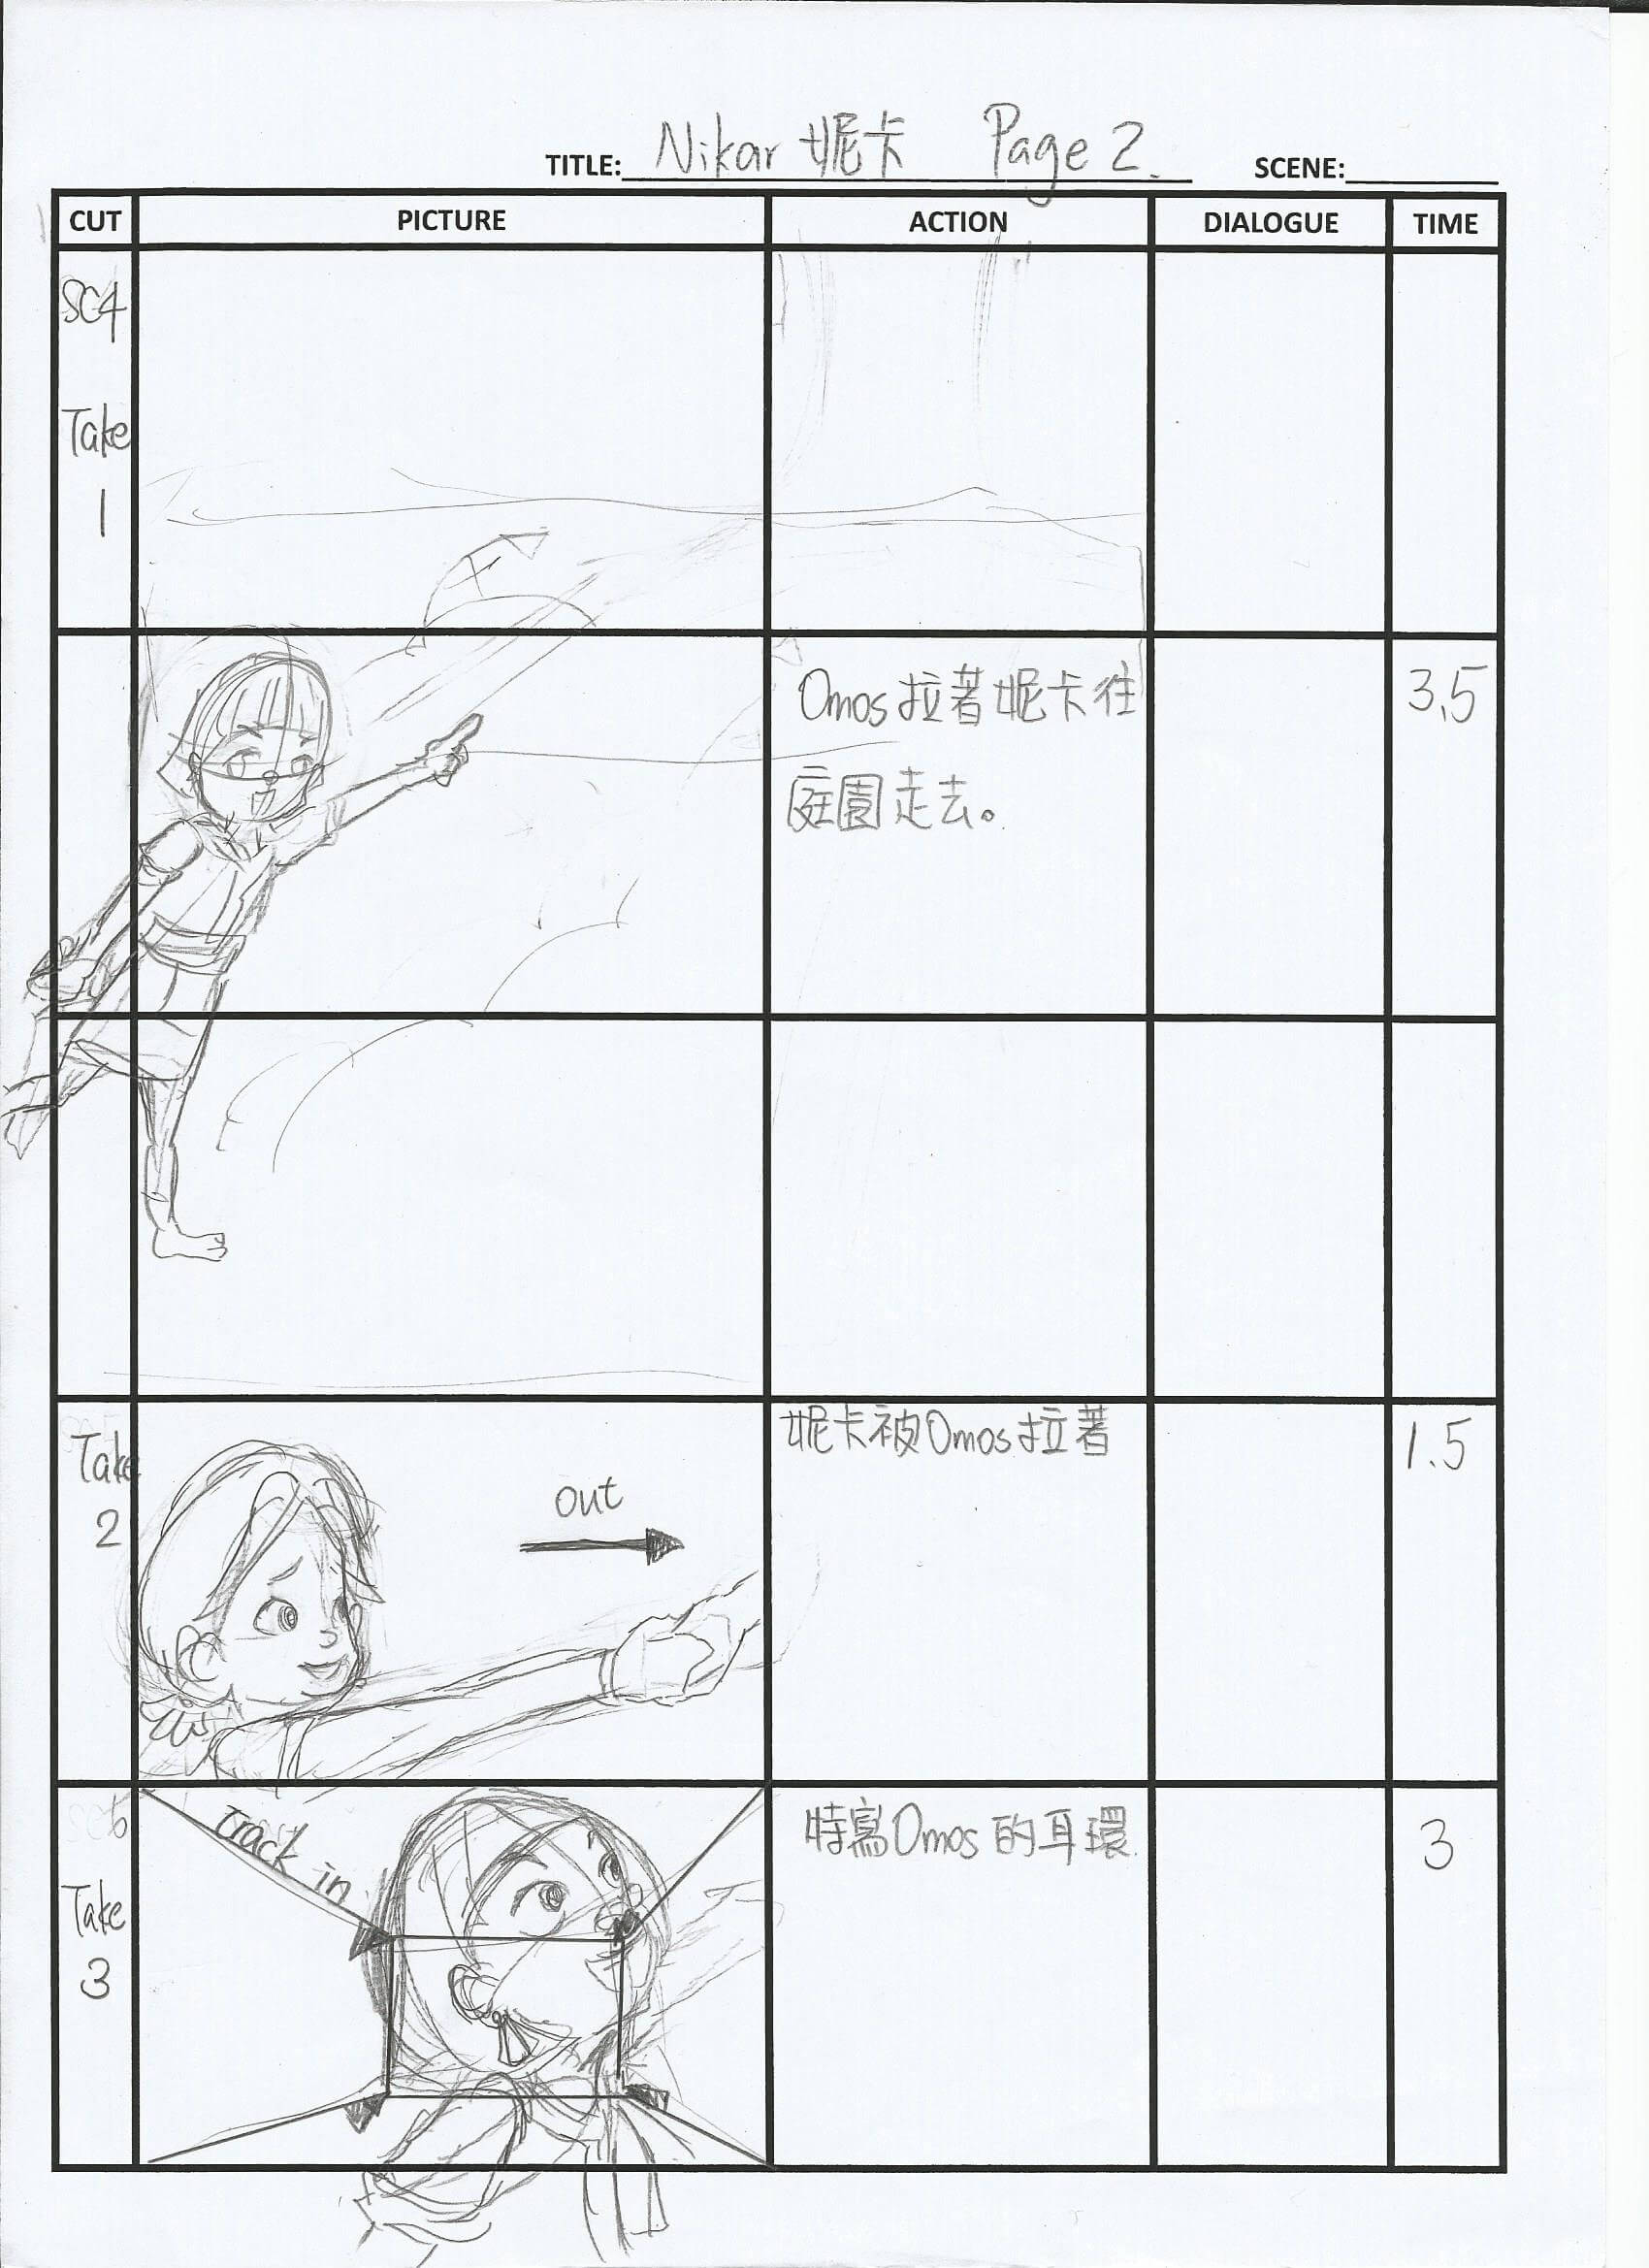 TITLE: Nikar 妮卡 Page 2. SCENE:
CUT PICTURE ACTION DIALOGUE TIME
SC4
Take
1
Omos拉著妮卡往
庭園走去。
3.5
Take
2
out
妮卡被Omos拉著
1.5
Take
3
Track in
特寫Omos的耳環
3